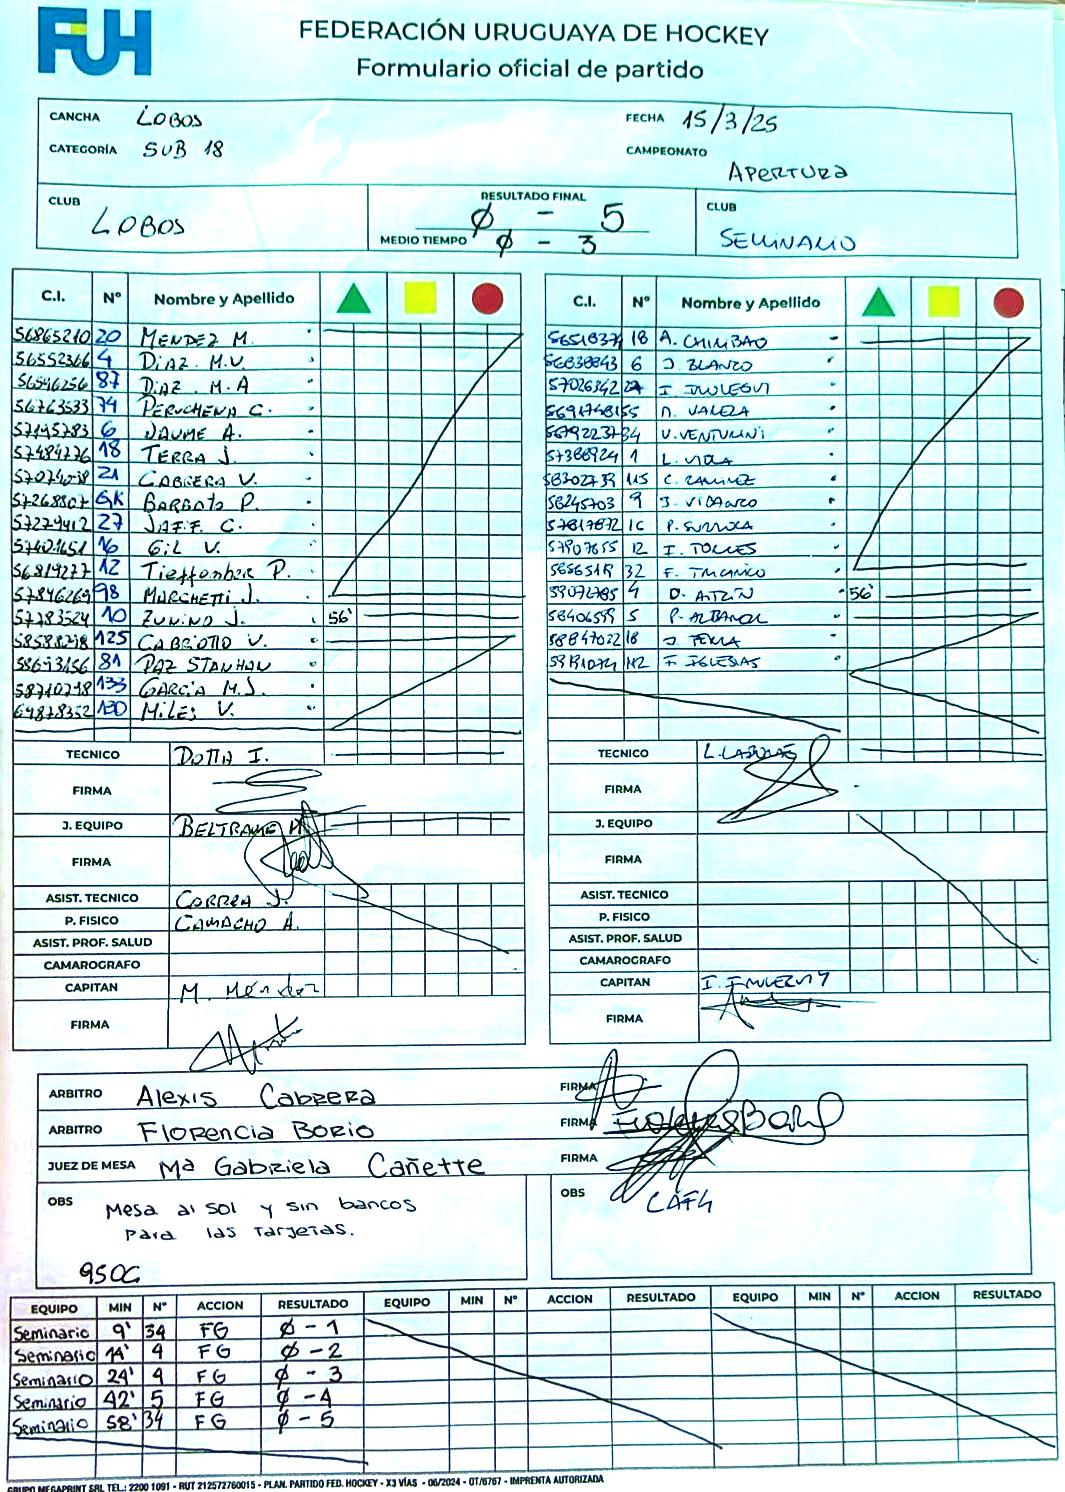 FUH
FEDERACIÓN URUGUAYA DE HOCKEY
Formulario oficial de partido
CANCHA LOBOS
FECHA 15/3/25
CATEGORÍA SUB 18
CAMPEONATO APERTURA
CLUB LOBOS
RESULTADO FINAL Ø - 5
MEDIO TIEMPO Ø - 3
CLUB SEMINARIO
C.I. Nº Nombre y Apellido
56865210 20 MENDEZ M.
56552366 4 DIAZ M.V.
56546256 87 DIAZ M.A
56763533 74 PERUCHENA C.
57195783 6 JAUME A.
57484776 18 TERRA J.
57074038 21 CABRERA V.
57268807 GK BARBOTO P.
57279412 27 JAFF. C.
57401651 16 GIL V.
56819277 12 Tieffember P.
57846269 98 MARCHETTI J.
57783524 10 ZUNINO J. 56'
58588218 125 CABRIOTTO V.
81 PAZ STANHAN
58710718 133 GARCIA M.J.
64878352 130 MILES V.
TECNICO DOTTA I.
FIRMA
J. EQUIPO BELTRAME M
FIRMA
ASIST. TECNICO CORREA J.
P. FISICO CAMACHO A.
ASIST. PROF. SALUD
CAMAROGRAFO
CAPITAN M. Méndez
FIRMA
C.I. Nº Nombre y Apellido
18 A. CHIMBAO
56838843 6 J. BLANCO
57026342 I. IMULEGUI
VALEZA
56792237 34 V. VENTURINI
57388924 1 L. VIOLA
58302739 115 C. RAMIREZ
58245703 9 J. VIDANCO
57817872 P.
57907655 12 I. TORRES
32 F.
59072785 4 56'
58406599 5 P. ALBANOL
58847022 18
112 F. IGLESIAS
TECNICO L.
FIRMA
J. EQUIPO
FIRMA
ASIST. TECNICO
P. FISICO
ASIST. PROF. SALUD
CAMAROGRAFO
CAPITAN I. IMULEGUI
FIRMA
ARBITRO Alexis Cabrera FIRMA
ARBITRO Florencia Borio FIRMA
JUEZ DE MESA Mª Gabriela Cañette FIRMA
OBS Mesa al sol y sin bancos
para las tarjetas.
OBS
EQUIPO MIN Nº ACCION RESULTADO EQUIPO MIN Nº ACCION RESULTADO EQUIPO MIN Nº ACCION RESULTADO
Seminario 9' 34 FG Ø - 1
Seminario 14' 4 FG Ø - 2
Seminario 24' 4 FG Ø - 3
Seminario 42' 5 FG Ø - 4
Seminario 58' 34 FG Ø - 5
GRUPO MEGAPRINT SRL TEL.: 2200 1091 - RUT 212572760015 - PLAN. PARTIDO FED. HOCKEY - X3 VÍAS - 06/2024 - OT/6767 - IMPRENTA AUTORIZADA